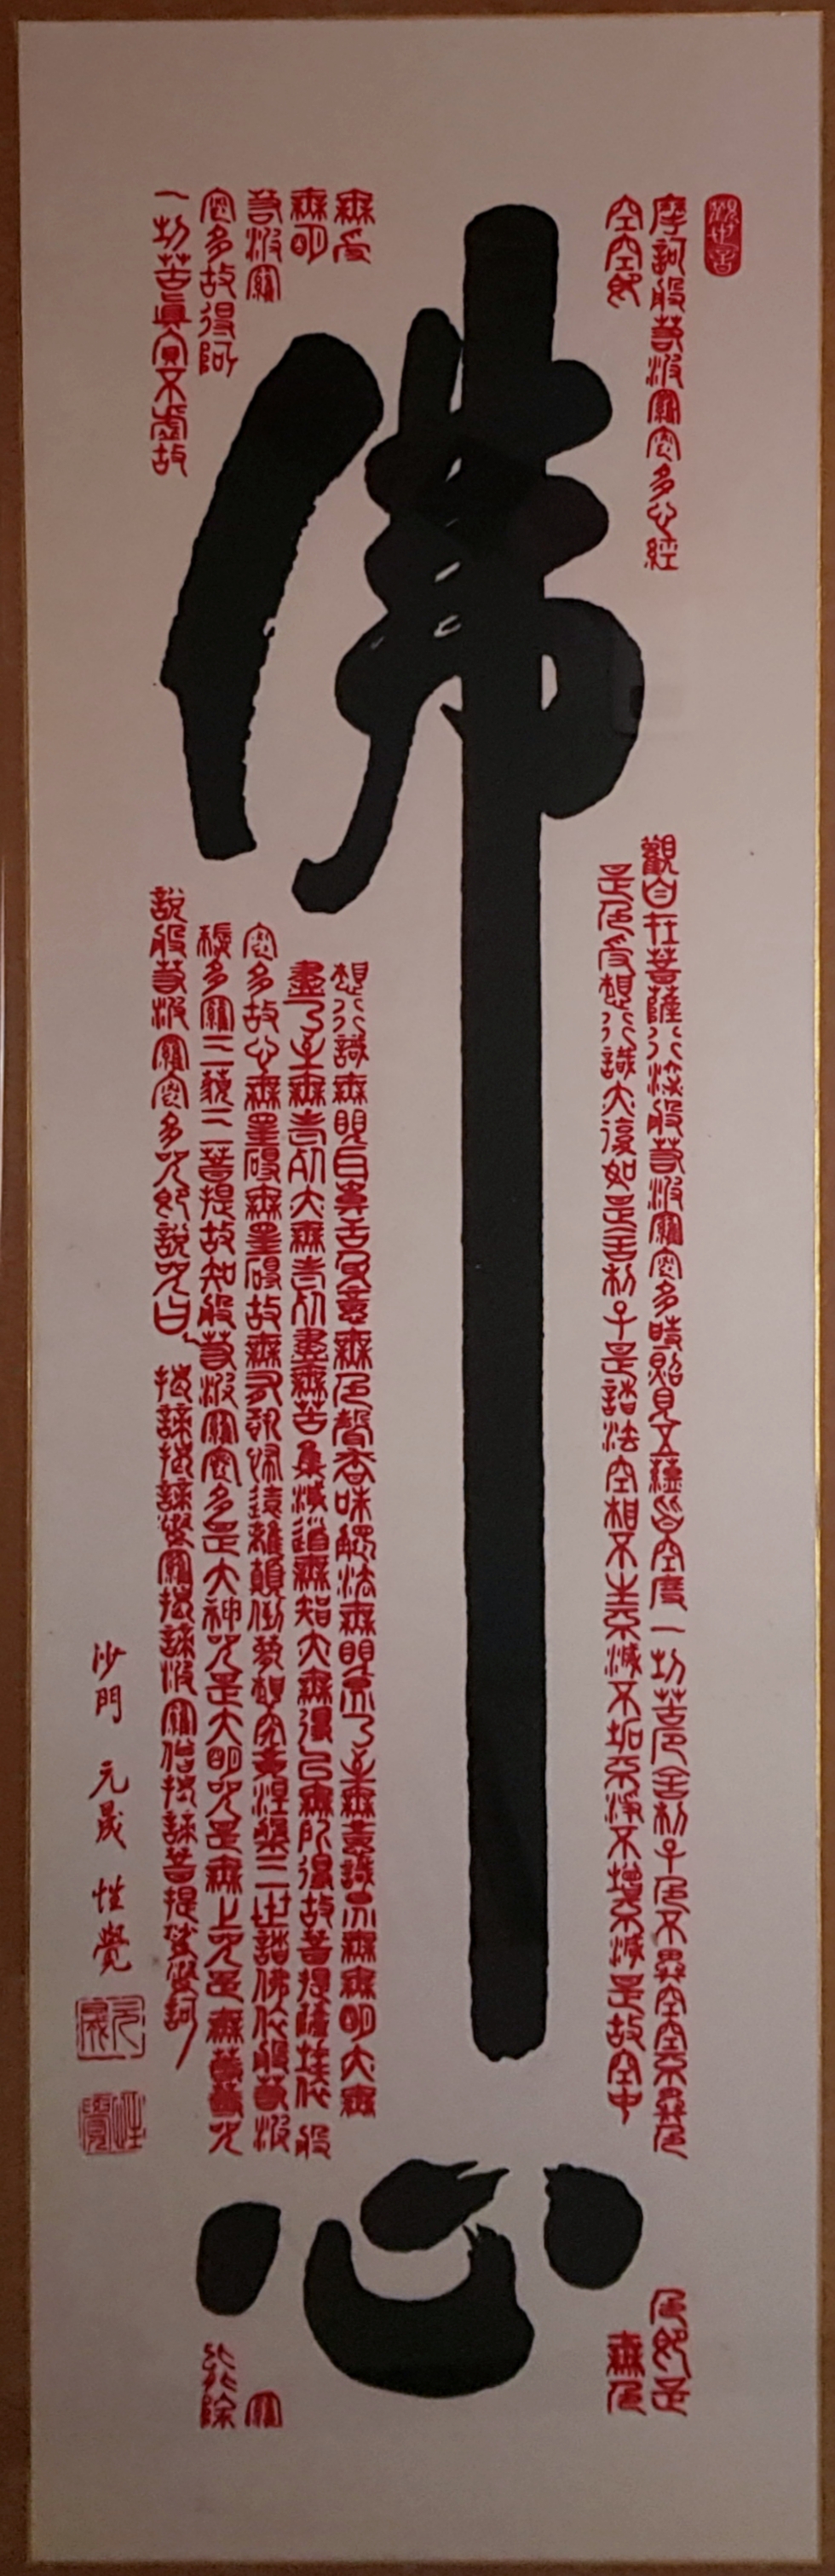 佛心
觀世音
摩訶般若波羅密多心經
觀自在菩薩行深般若波羅密多時照見五蘊皆空度一切苦厄舍利子色不異空空不異色
色卽是
空空卽
是色受想行識亦復如是舍利子是諸法空相不生不滅不垢不淨不增不減是故空中
無色
無受
想行識無眼耳鼻舌身意無色聲香味觸法無眼界乃至無意識界無無明亦無
無明
盡乃至無老死亦無老死盡無苦集滅道無智亦無得以無所得故菩提薩埵依般
若波羅
密多故心無罣碍無罣碍故無有恐怖遠離顚倒夢想究竟涅槃三世諸佛依般若波
羅
密多故得阿
耨多羅三藐三菩提故知般若波羅密多是大神呪是大明呪是無上呪是無等等呪
能除
一切苦眞實不虛故
說般若波羅密多呪卽說呪曰 揭諦揭諦波羅揭諦波羅僧揭諦菩提娑婆訶
沙門 元晟 性覺
元晟
性覺